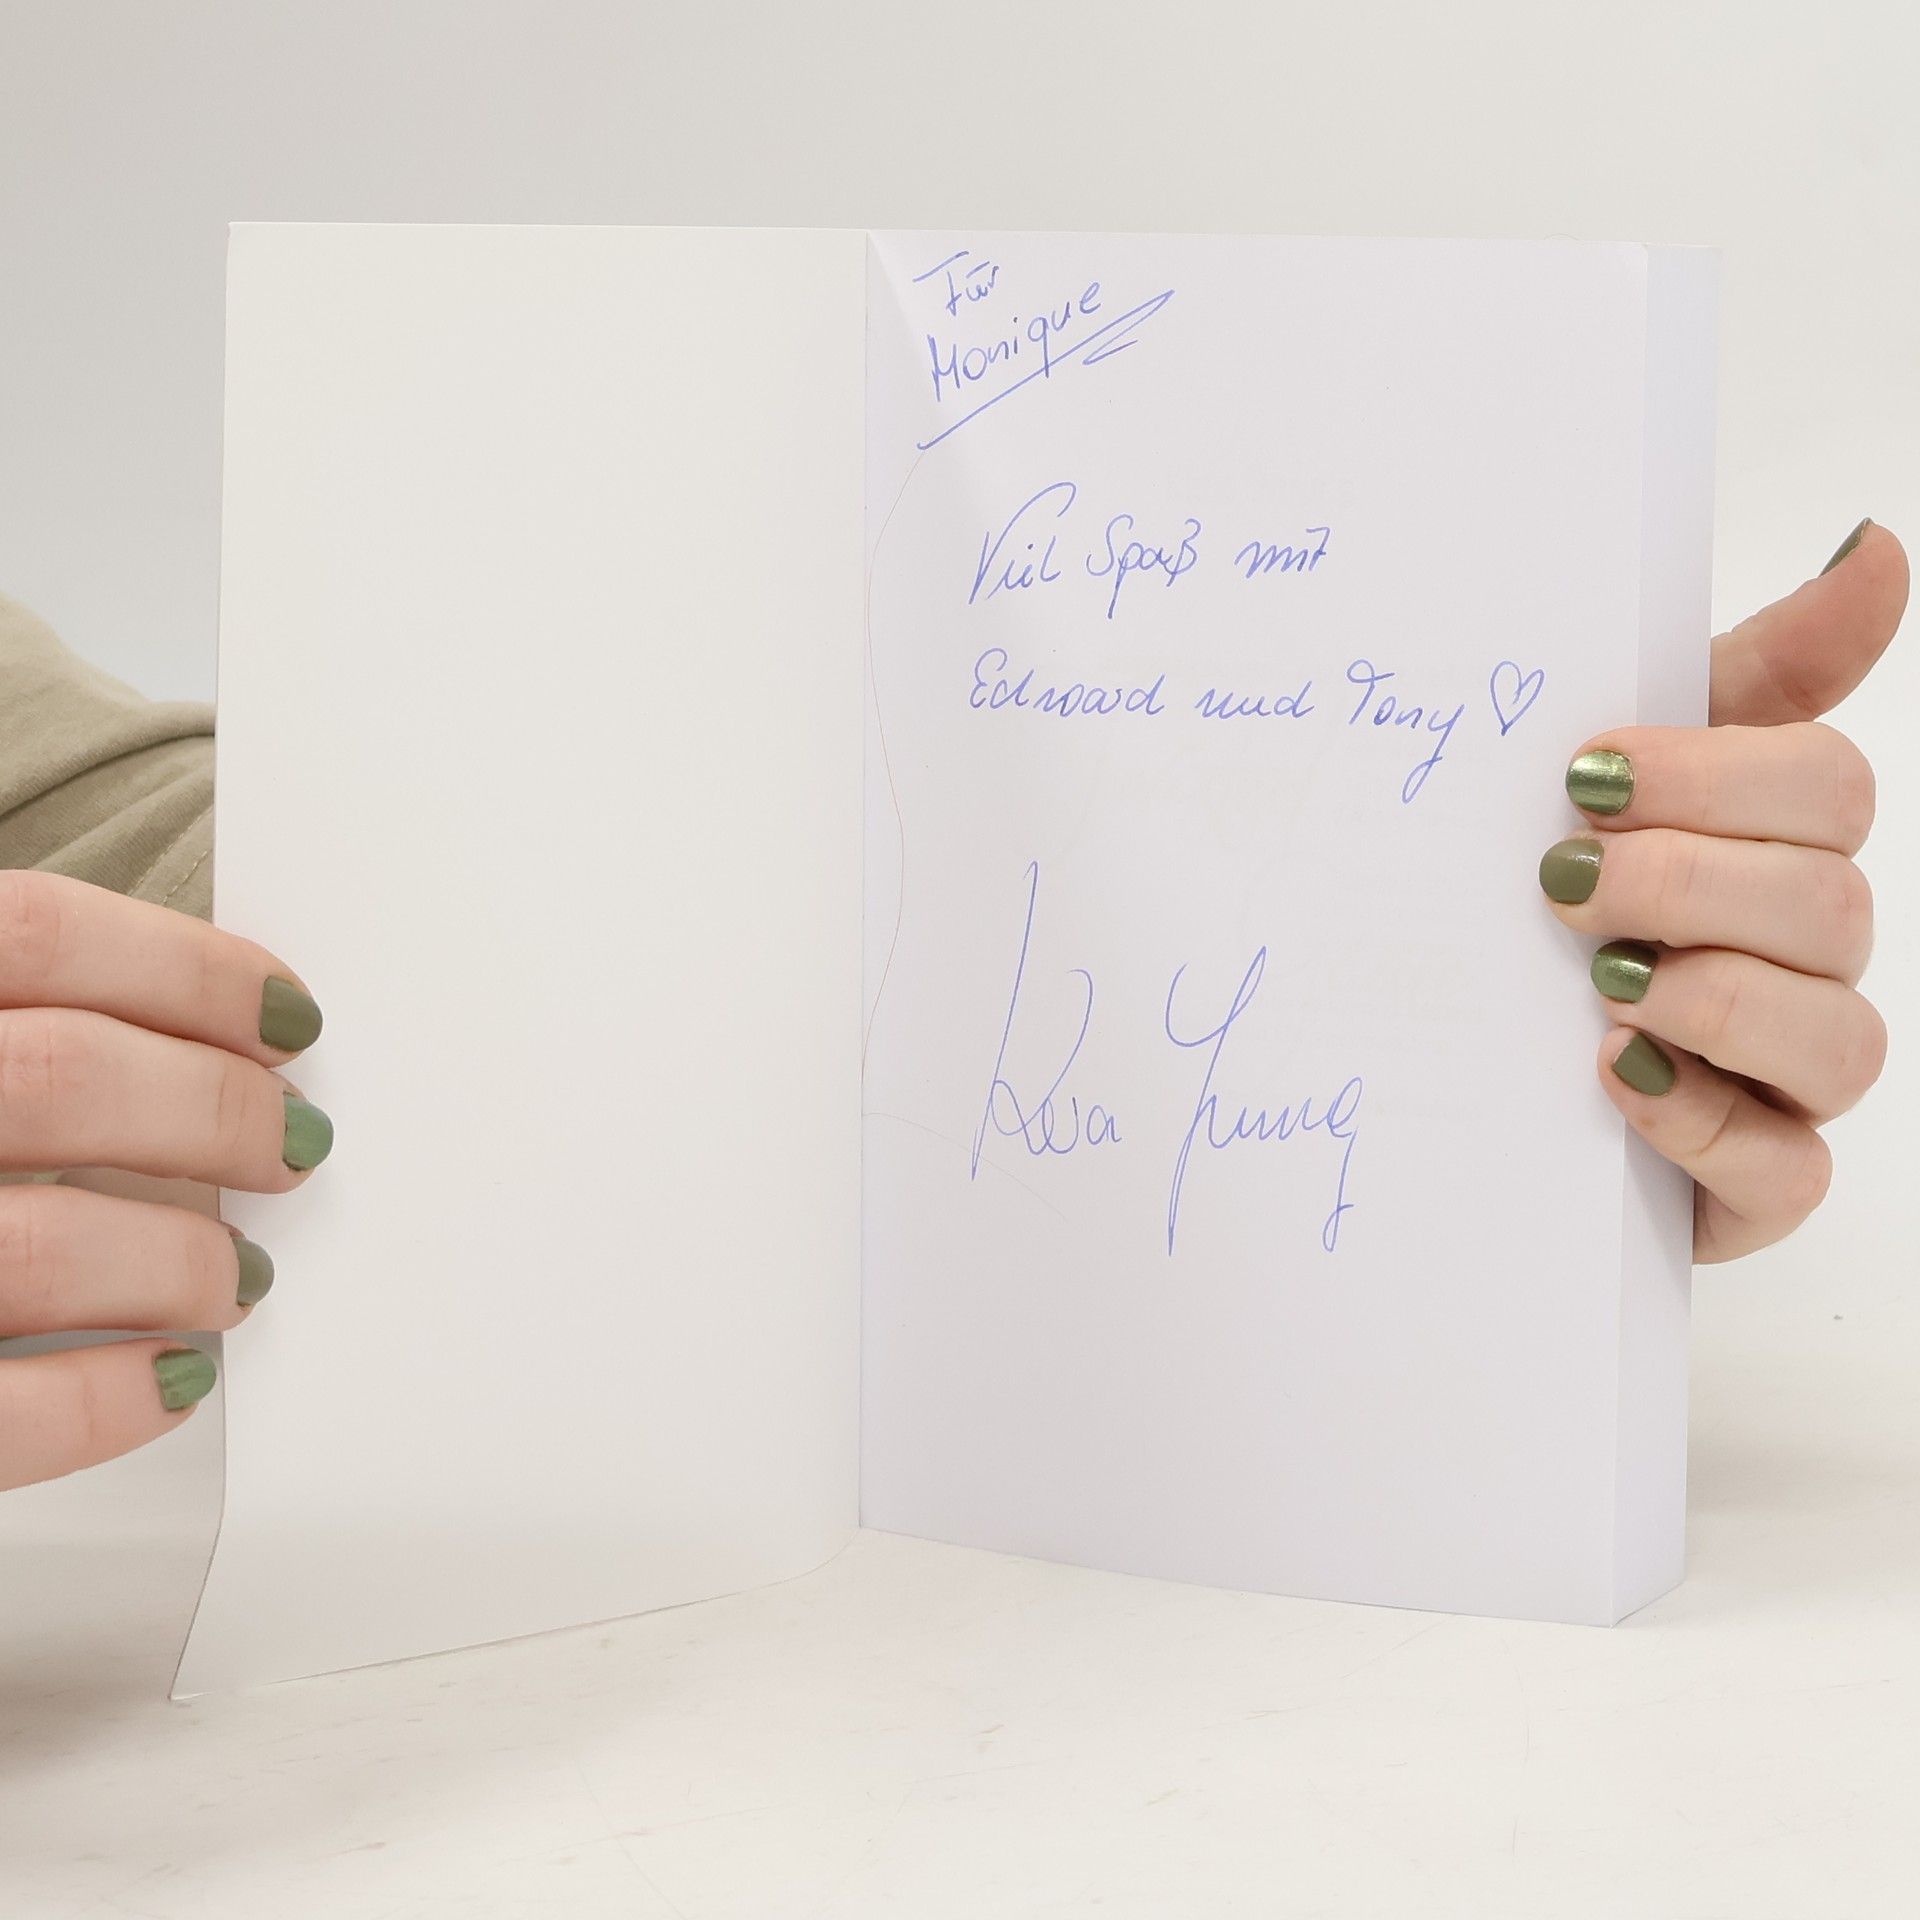 Für
Monique
Viel Spaß mit
Edward und Tony ♡